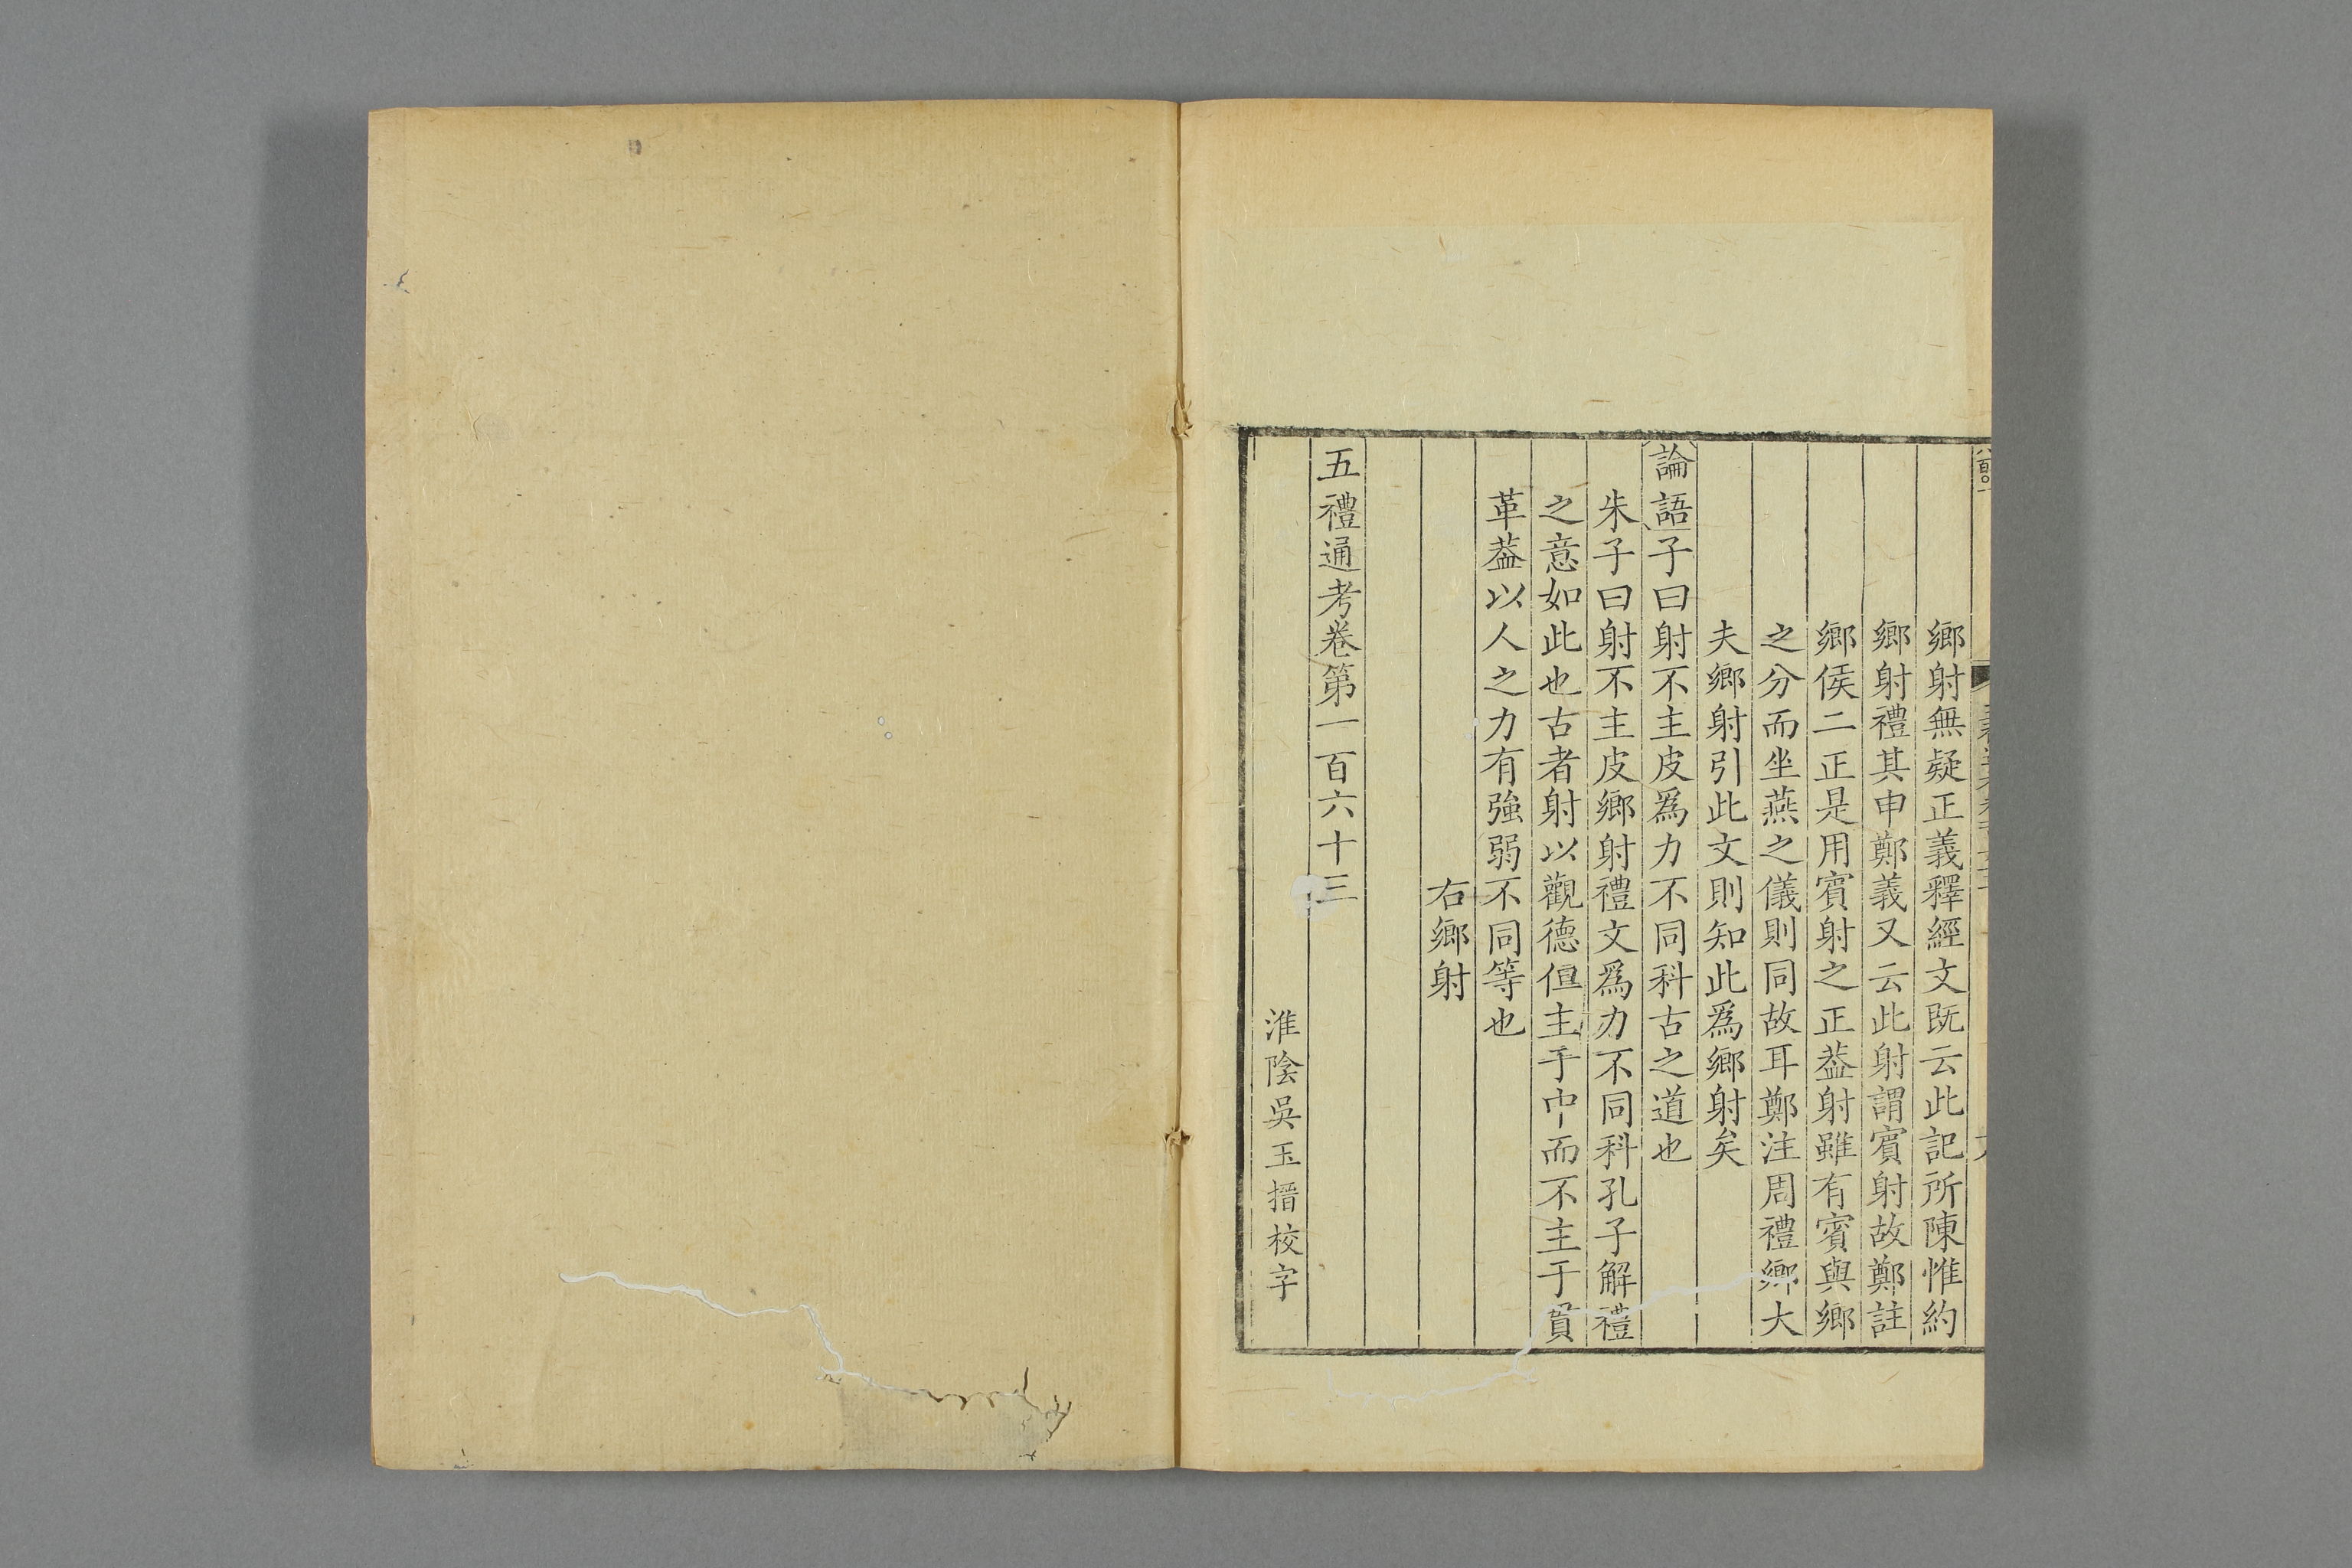 鄉射無疑正義釋經文既云此記所陳惟約
鄉射禮其申鄭義又云此射謂賓射故鄭註
鄉侯二正是用賓射之正葢射雖有賓與鄉
之分而坐燕之儀則同故耳鄭注周禮鄉大
夫鄉射引此文則知此爲鄉射矣
論語子曰射不主皮爲力不同科古之道也
朱子曰射不主皮鄉射禮文爲力不同科孔子解禮
之意如此也古者射以觀德但主于中而不主于貫
革葢以人之力有強弱不同等也
右鄉射
五禮通考卷第一百六十三
淮陰吳玉搢校字